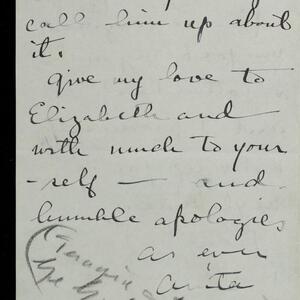 call him up about
it.
Give my love to
Elizabeth and
with much to your
-self — and
humble apologies
as ever
Anita